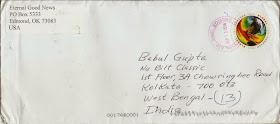 Eternal Good News
PO Box 5333
Edmond, OK 73083
USA
Babul Gupta
Nu Bilt Classic
1st Floor, 3A Chowringhee Road
Kolkata - 700 013
West Bengal - (13)
India